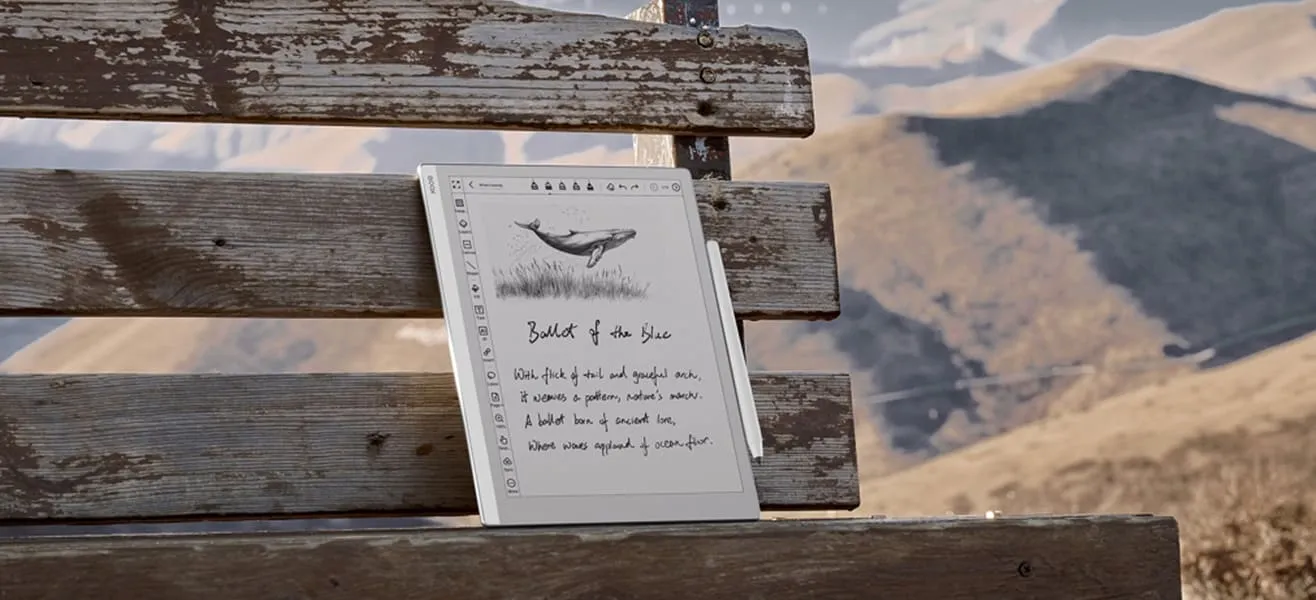 BOOX
Ballet of the Blue
With flick of tail and graceful arch,
it weaves a pattern, nature's march.
A ballet born of ancient lore,
Where waves applaud of ocean floor.